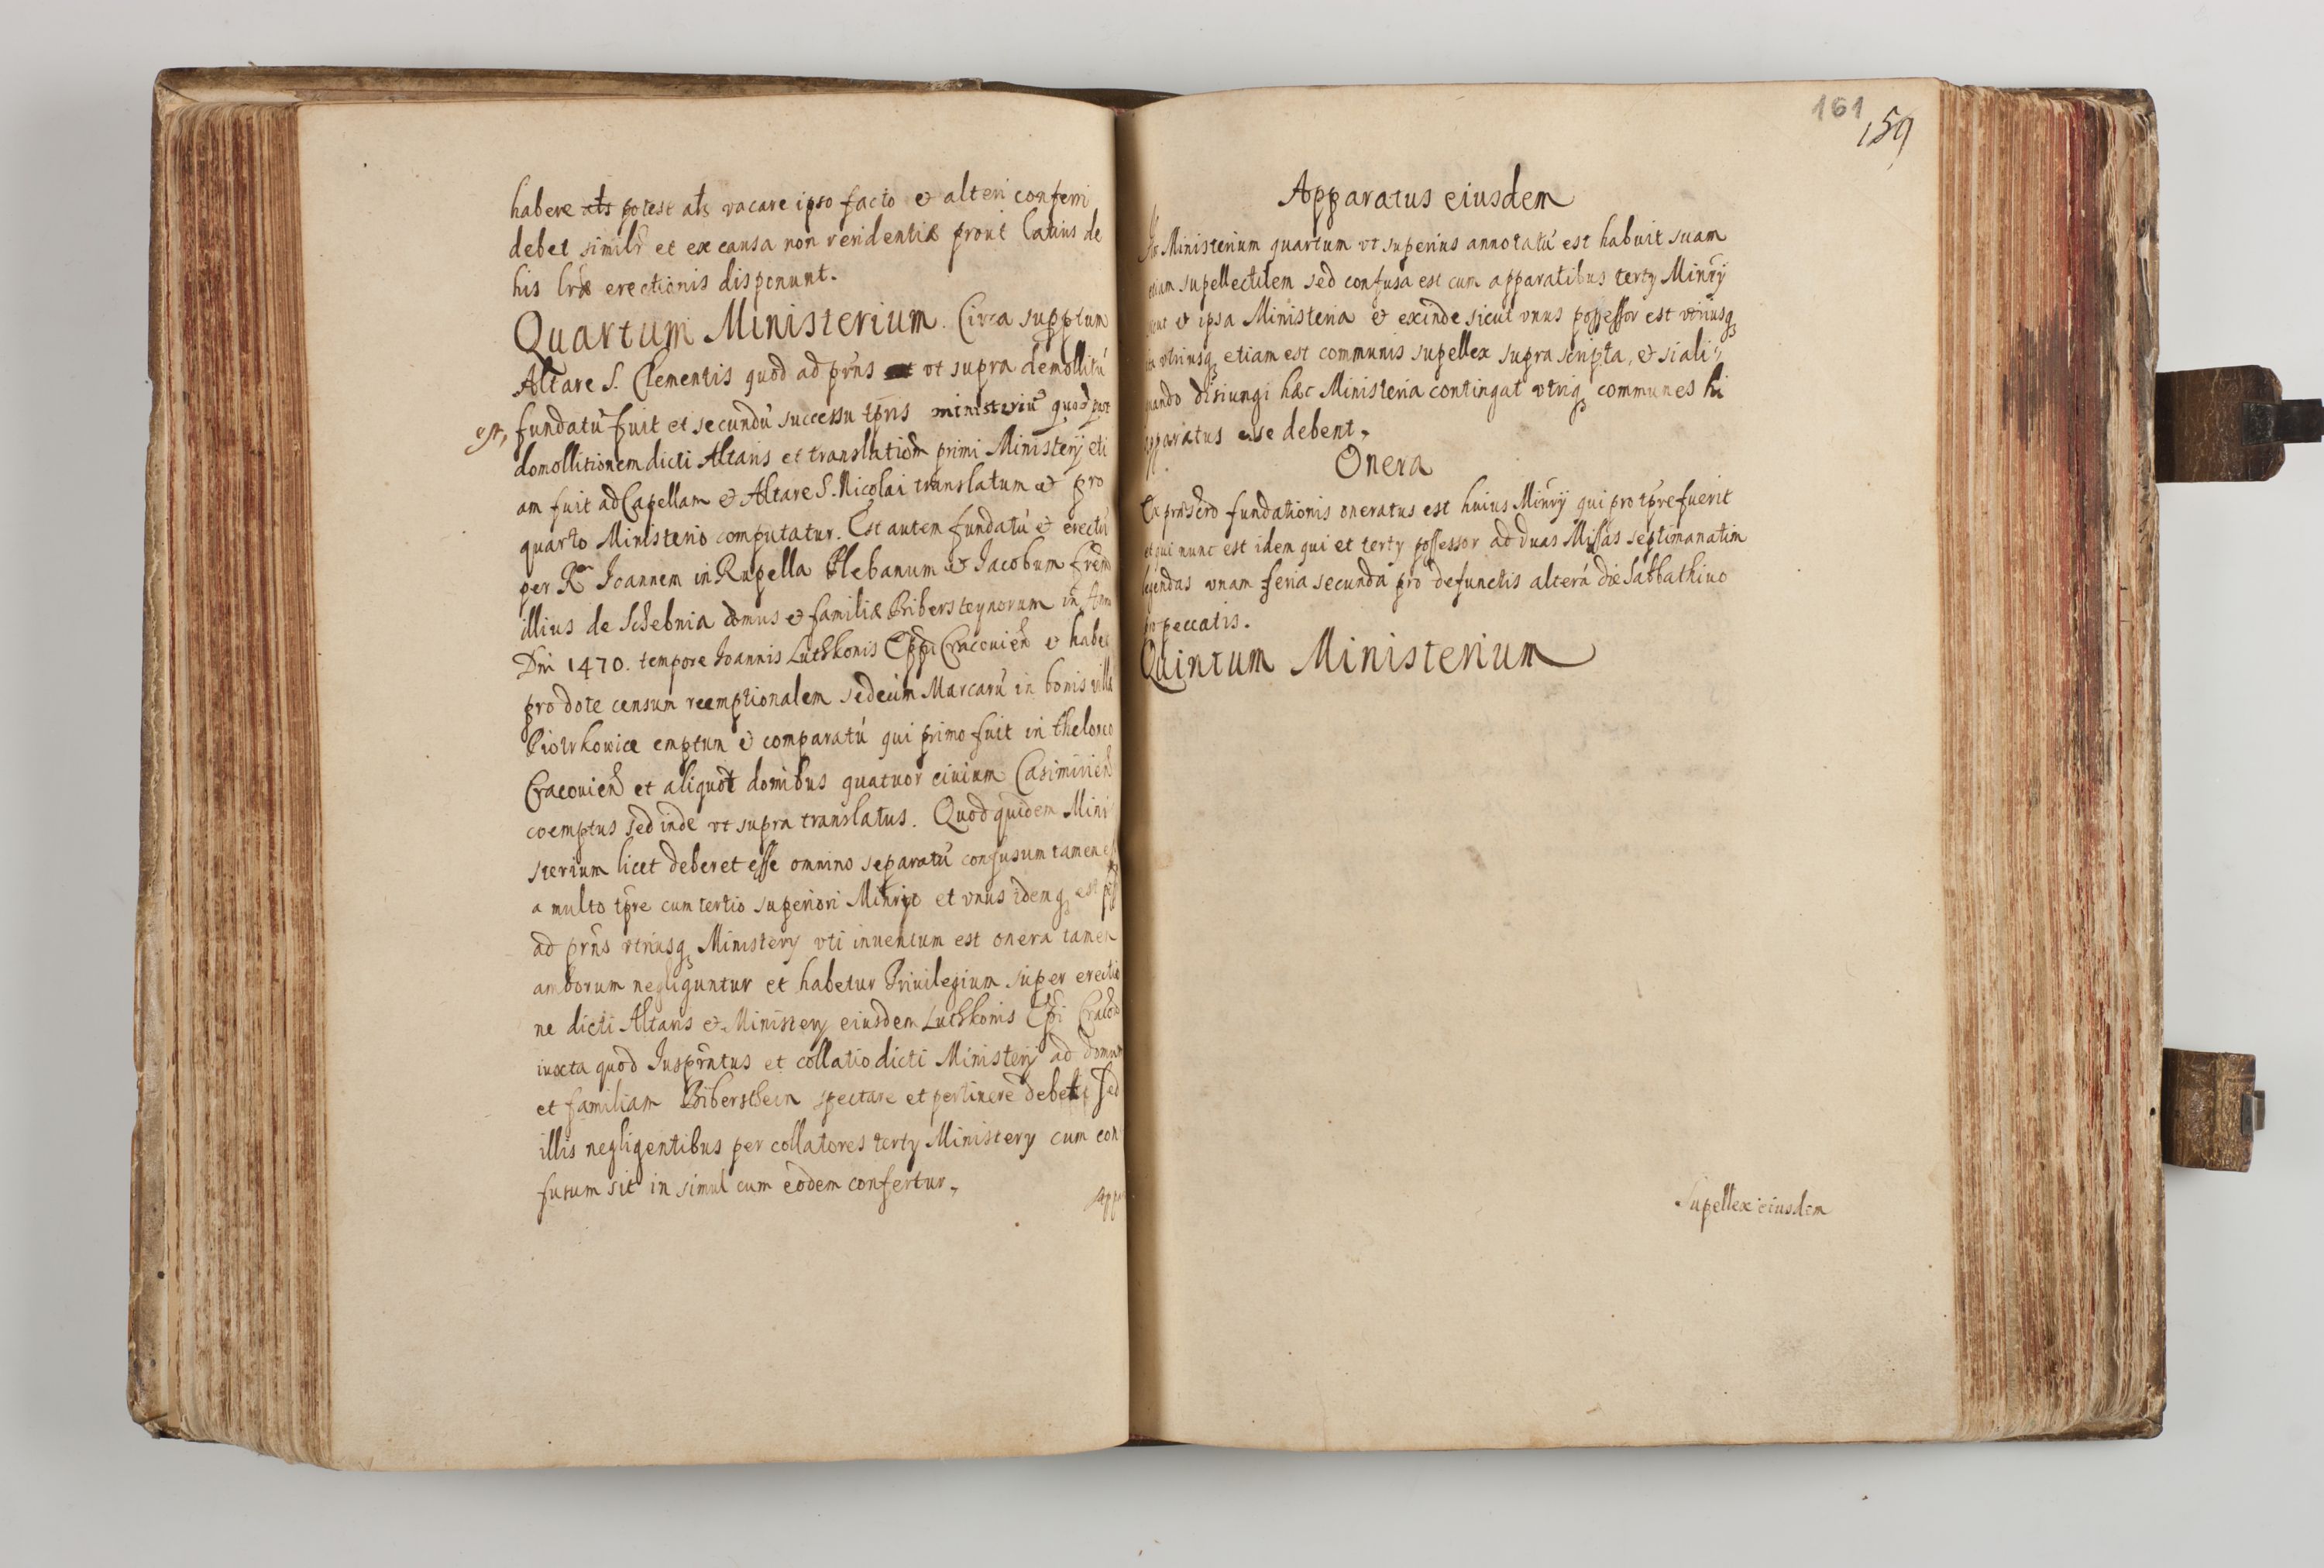 habere potest als vacare ipso facto et alteri conferri
debet similr et ex causa non residentiæ prout latius de
his lræ erectionis disponunt.
Quartum Ministerium. Circa supptum
Altare S. Clementis quod ad prns ut supra demollitú
est, fundatú fuit et secundú successu tpris ministeriú quod post
domollitionem dicti Altaris et translation primi Ministerij eti
am fuit ad Capellam et Altare S. Nicolai translatum et pro
quarto Ministerio computatur. Est autem fundatú et erectú
per Rm Joannem in Rupella Plebanum et Jacobum frem
illius de Schebnia domus et familiæ Bibersteynorum in Anno
Dni 1470. tempore Joannis Luthkonis Eppi Cracouien et habet
pro dote censum reemptionalem sedecim Marcarú in bonis villa
Piotrkowice emptum et comparatú qui primo fuit in theloneo
Cracouien et aliquot domibus quatuor ciuium Casimirien
coemptus sed inde vt supra translatus. Quod quidem Mini
sterium licet deberet esse omnino separatú confusum tamen est
a multo tpre cum tertio superiori Minrio et vnus idemq est
ad prns vtriusq Ministery vti inuentum est onera tamen
amborum negliguntur et habetur Priuilegium super erectio
ne dicti Altaris et Ministery eiusdem Luthkonis Epi Cracou
iuxta quod Jusprntus et collatio dicti Ministerij ad domum
et familiam Biberschein spectare et pertinere debet Sed
illis negligentibus per collatores terty Ministery cum con
fusum sit in simul cum eodem confertur.
Appa
161
159
Apparatus eiusdem
Ministerium quartum vt superius annotatú est habuit suam
etiam supellectilem sed confusa est cum apparatibus terty Minrij
sicut et ipsa Ministeria et exinde sicut vnus possessor est vtriusq
ita vtriusq etiam est communis supellex supra scripta, et si ali
quando disiungi hæc Ministeria contingat vtriq communes hi
apparatus esse debent.
Onera
Ex præscrō fundationis oneratus est huius Minrij qui pro tpre fuerit
et qui nunc est idem qui et terty possessor ad duas Missas septimanatim
legendas vnam feria secunda pro defunctis alterá die Sabbathino
pro peccatis.
Quintum Ministerium
Supellex eiusdem